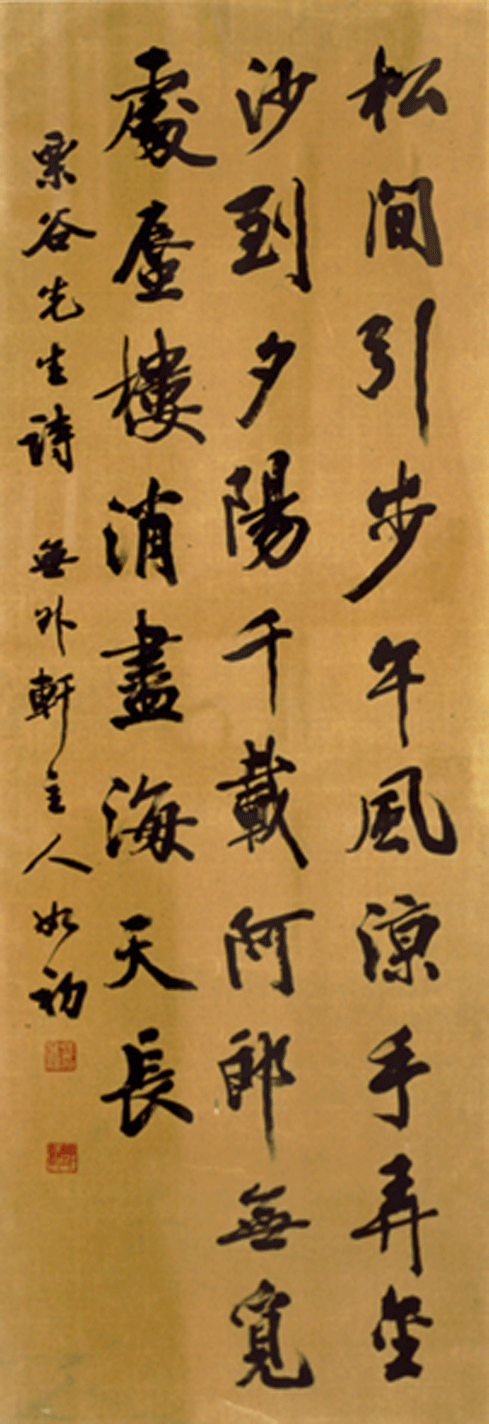 松間引步午風涼手弄金
沙到夕陽千載阿郎無覓
處蜃樓消盡海天長
栗谷先生詩 無外軒主人如初